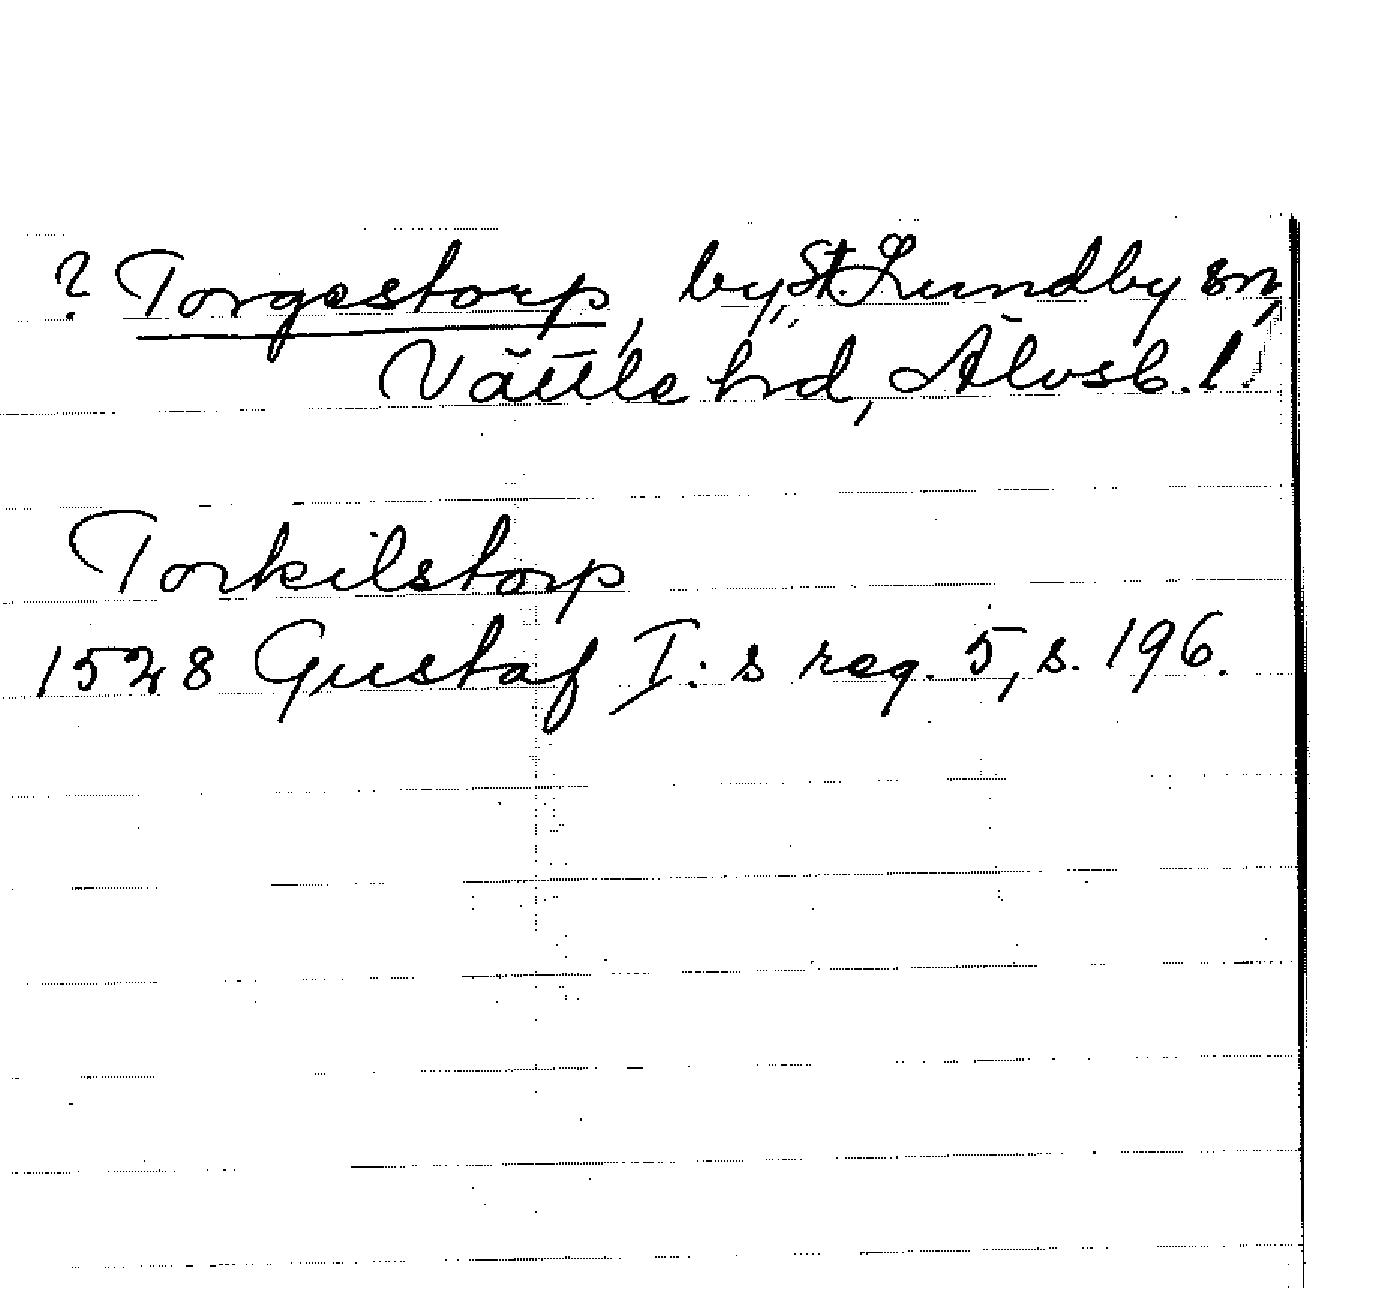 ? Torgestorp, by, St. Lundby sn,
Vättle hd, Älvsb. l.
Torkilstorp
1528 Gustaf I:s reg. 5, s. 196.